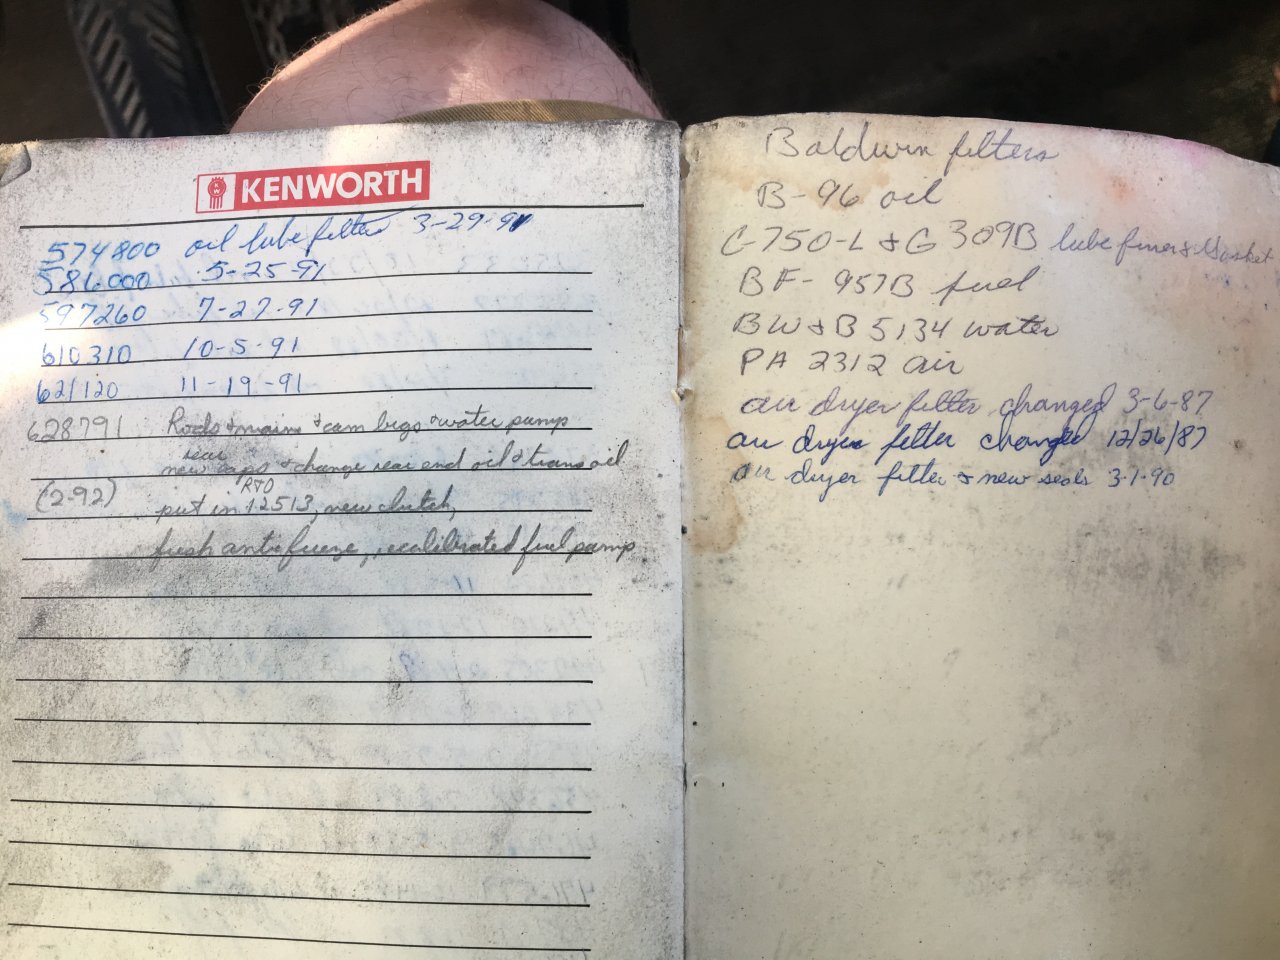 KW KENWORTH
574800 oil lube filter 3-29-91
586000 5-25-91
597260 7-27-91
610310 10-5-91
621120 11-19-91
628791 Rods & mains & cam brgs & water pump
rear
new caps & change rear end oil & trans oil
RTO
(2-92) put in 12513, new clutch,
fresh antifreeze, recalibrated fuel pump
Baldwin filters
B-96 oil
C-750-L & G 309B lube finer & Gasket
BF-957B fuel
BW & B5134 water
PA 2312 air
air dryer filter changed 3-6-87
air dryer filter change 12/26/87
air dryer filter & new seals 3-1-90